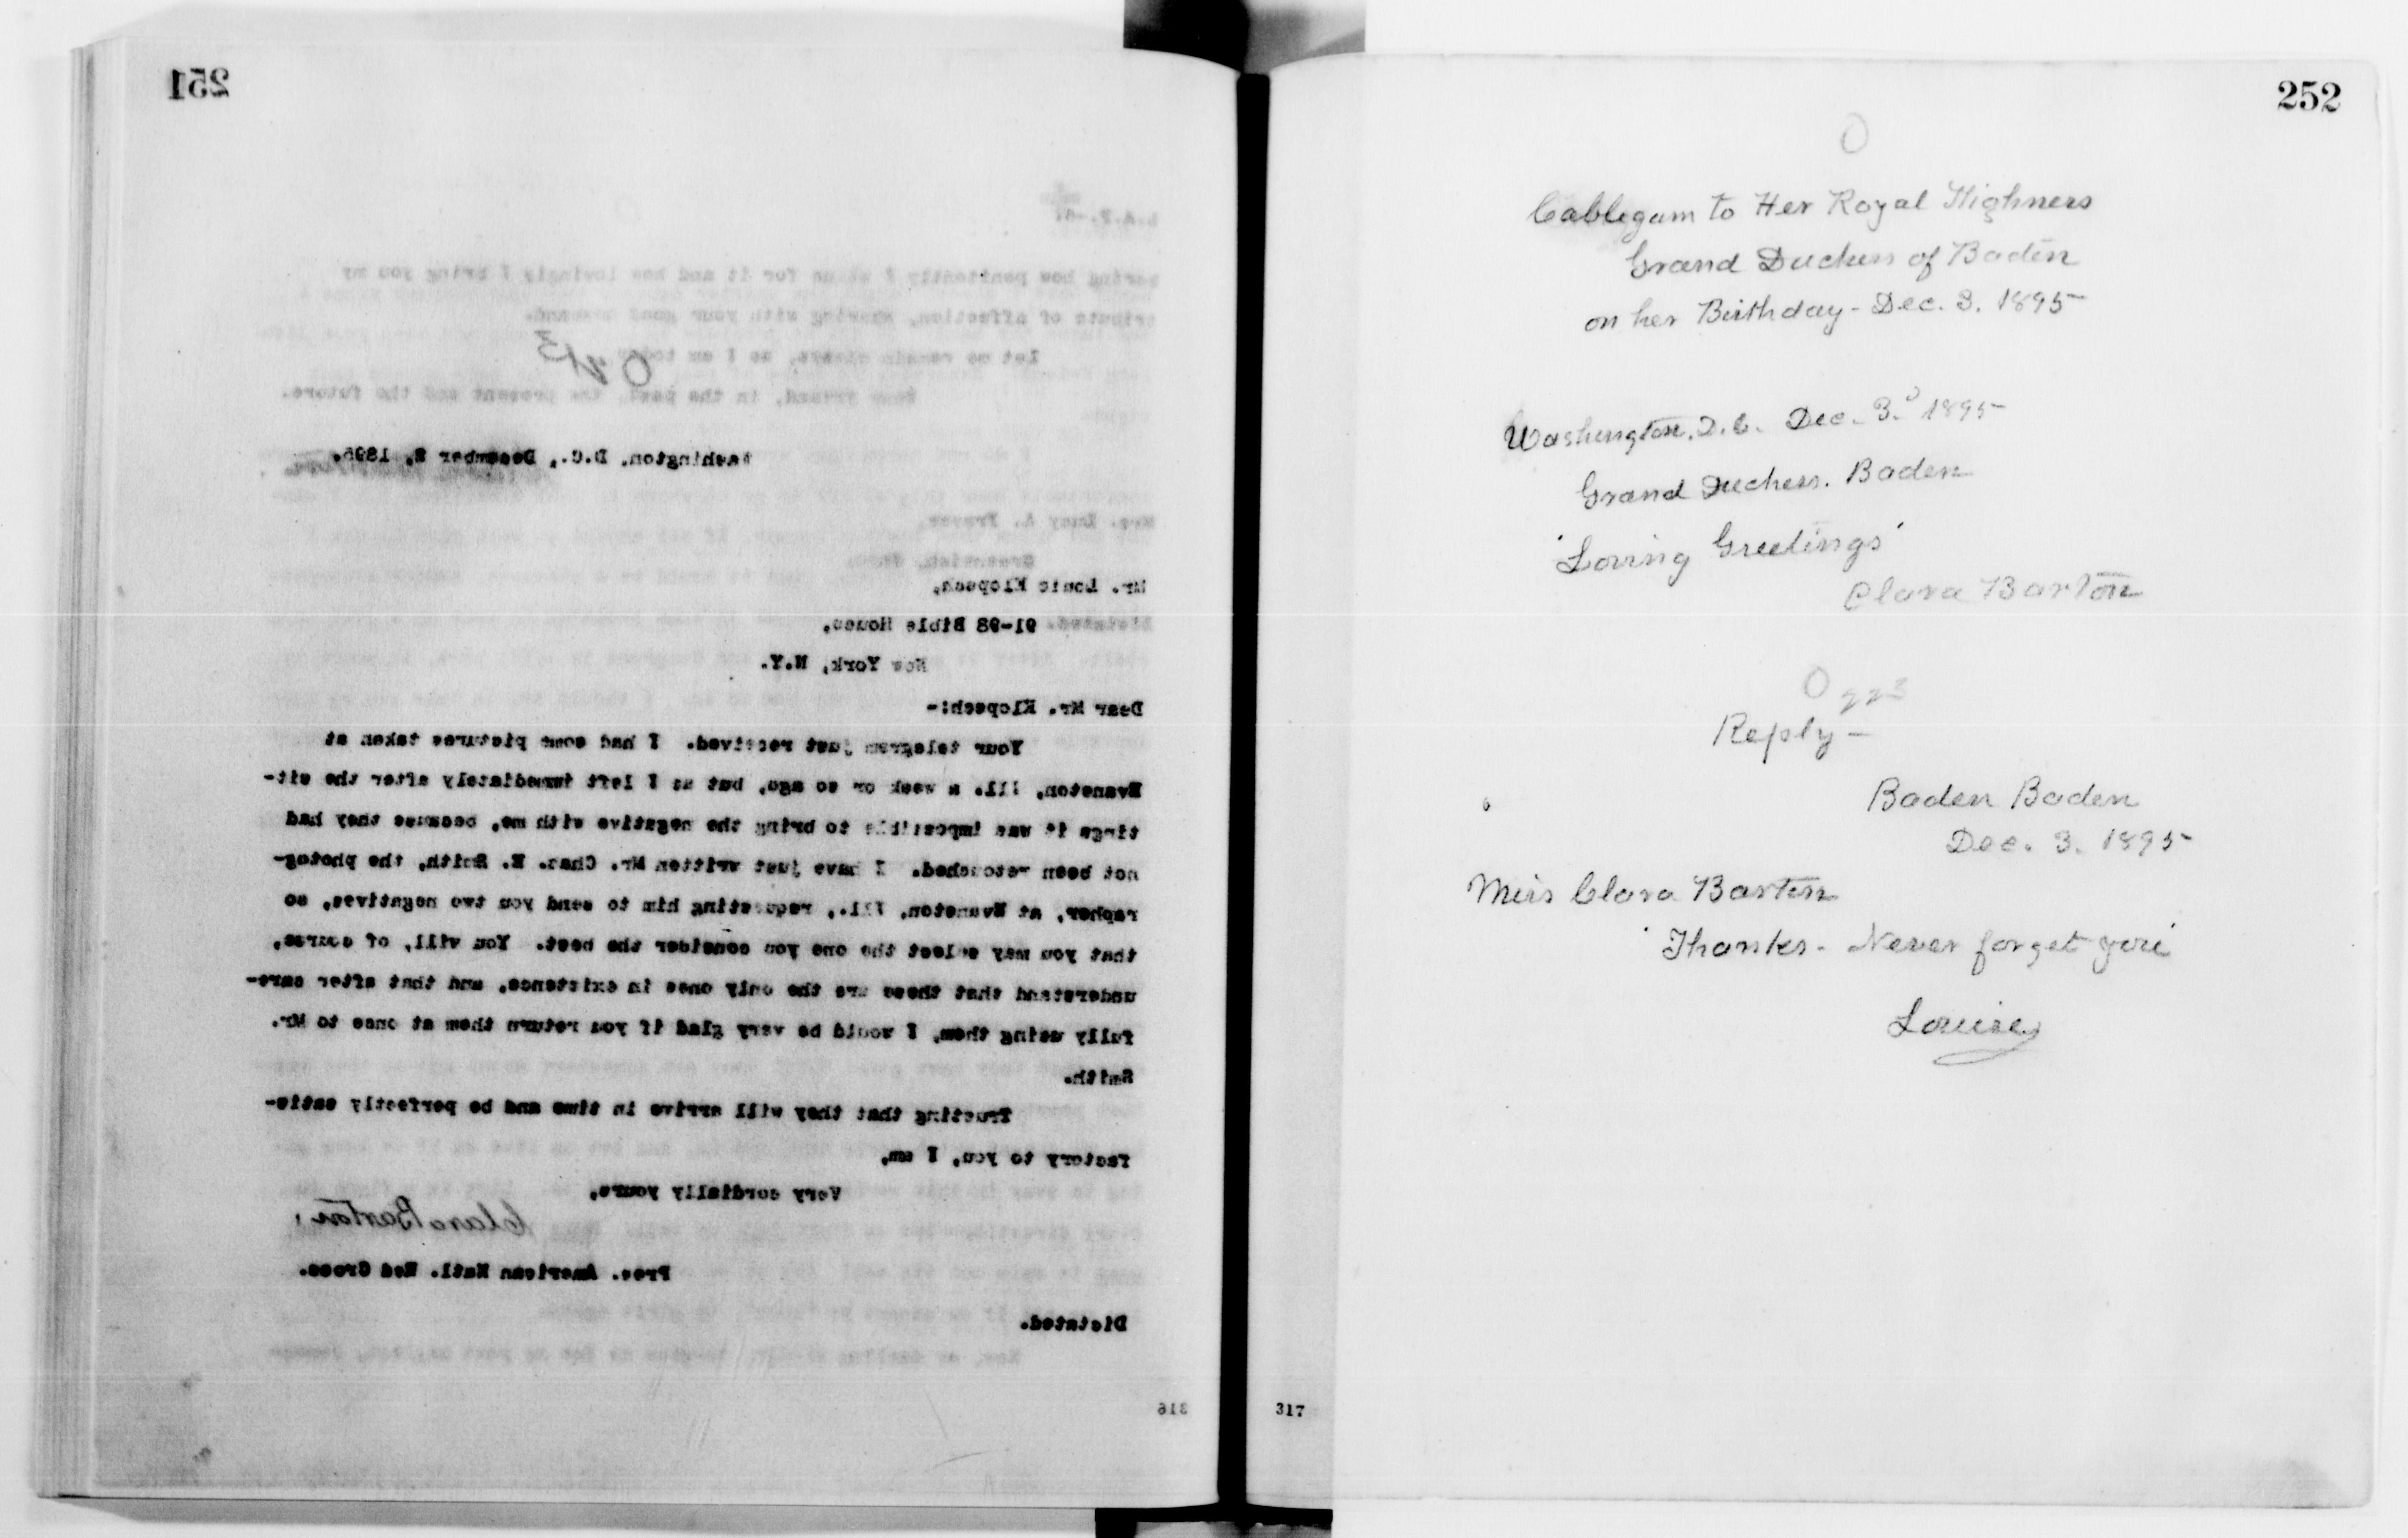 251
Washington, D.C., December 2, 1895.
Mr. Louis Klopsch,
91-98 Bible House,
New York, N.Y.
Dear Mr. Klopsch:-
Your telegram just received. I had some pictures taken at
Evanston, Ill. a week or so ago, but as I left immediately after the sit-
tings it was impossible to bring the negative with me, because they had
not been retouched. I have just written Mr. Chas. E. Smith, the photog-
rapher, at Evanston, Ill., requesting him to send you two negatives, so
that you may select the one you consider the best. You will, of course,
understand that these are the only ones in existence, and that after care-
fully using them, I would be very glad if you return them at once to Mr.
Smith.
Trusting that they will arrive in time and be perfectly satis-
factory to you, I am,
Very cordially yours,
Clara Barton,
Pres. American Natl. Red Cross.
Dictated.
316
252
Cablegam to Her Royal Highness
Grand Duchess of Baden
on her Birthday - Dec. 3. 1895
Washington. D.C. Dec. 3. 1895
Grand Duchess. Baden
'Loving Greetings'
Clara Barton
Reply -
Baden Baden
Dec. 3. 1895
Miss Clara Barton
'Thanks - Never forget you'
Louise
317